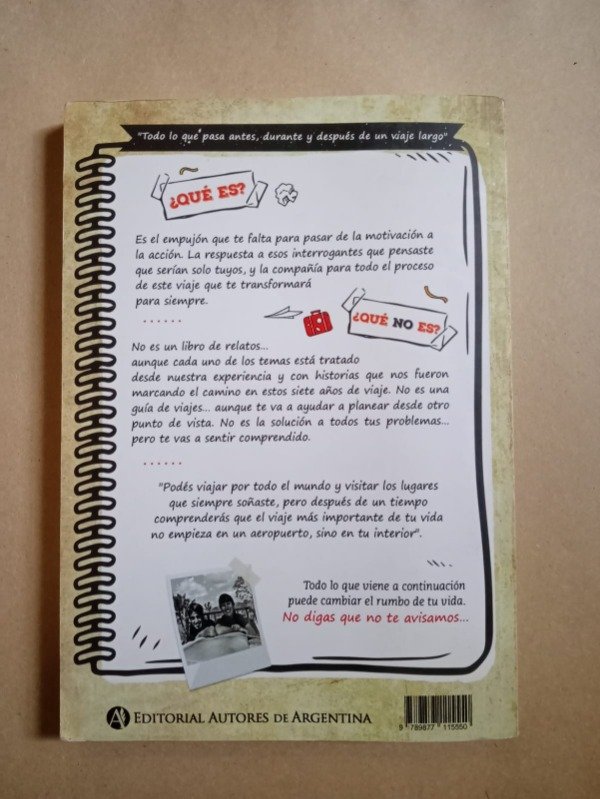 "Todo lo que pasa antes, durante y después de un viaje largo"
¿QUÉ ES?
Es el empujón que te falta para pasar de la motivación a
la acción. La respuesta a esos interrogantes que pensaste
que serían solo tuyos, y la compañía para todo el proceso
de este viaje que te transformará
para siempre.
¿QUÉ NO ES?
No es un libro de relatos...
aunque cada uno de los temas está tratado
desde nuestra experiencia y con historias que nos fueron
marcando el camino en estos siete años de viaje. No es una
guía de viajes... aunque te va a ayudar a planear desde otro
punto de vista. No es la solución a todos tus problemas...
pero te vas a sentir comprendido.
"Podés viajar por todo el mundo y visitar los lugares
que siempre soñaste, pero después de un tiempo
comprenderás que el viaje más importante de tu vida
no empieza en un aeropuerto, sino en tu interior".
Todo lo que viene a continuación
puede cambiar el rumbo de tu vida.
No digas que no te avisamos...
EDITORIAL AUTORES DE ARGENTINA
9 789877 115550